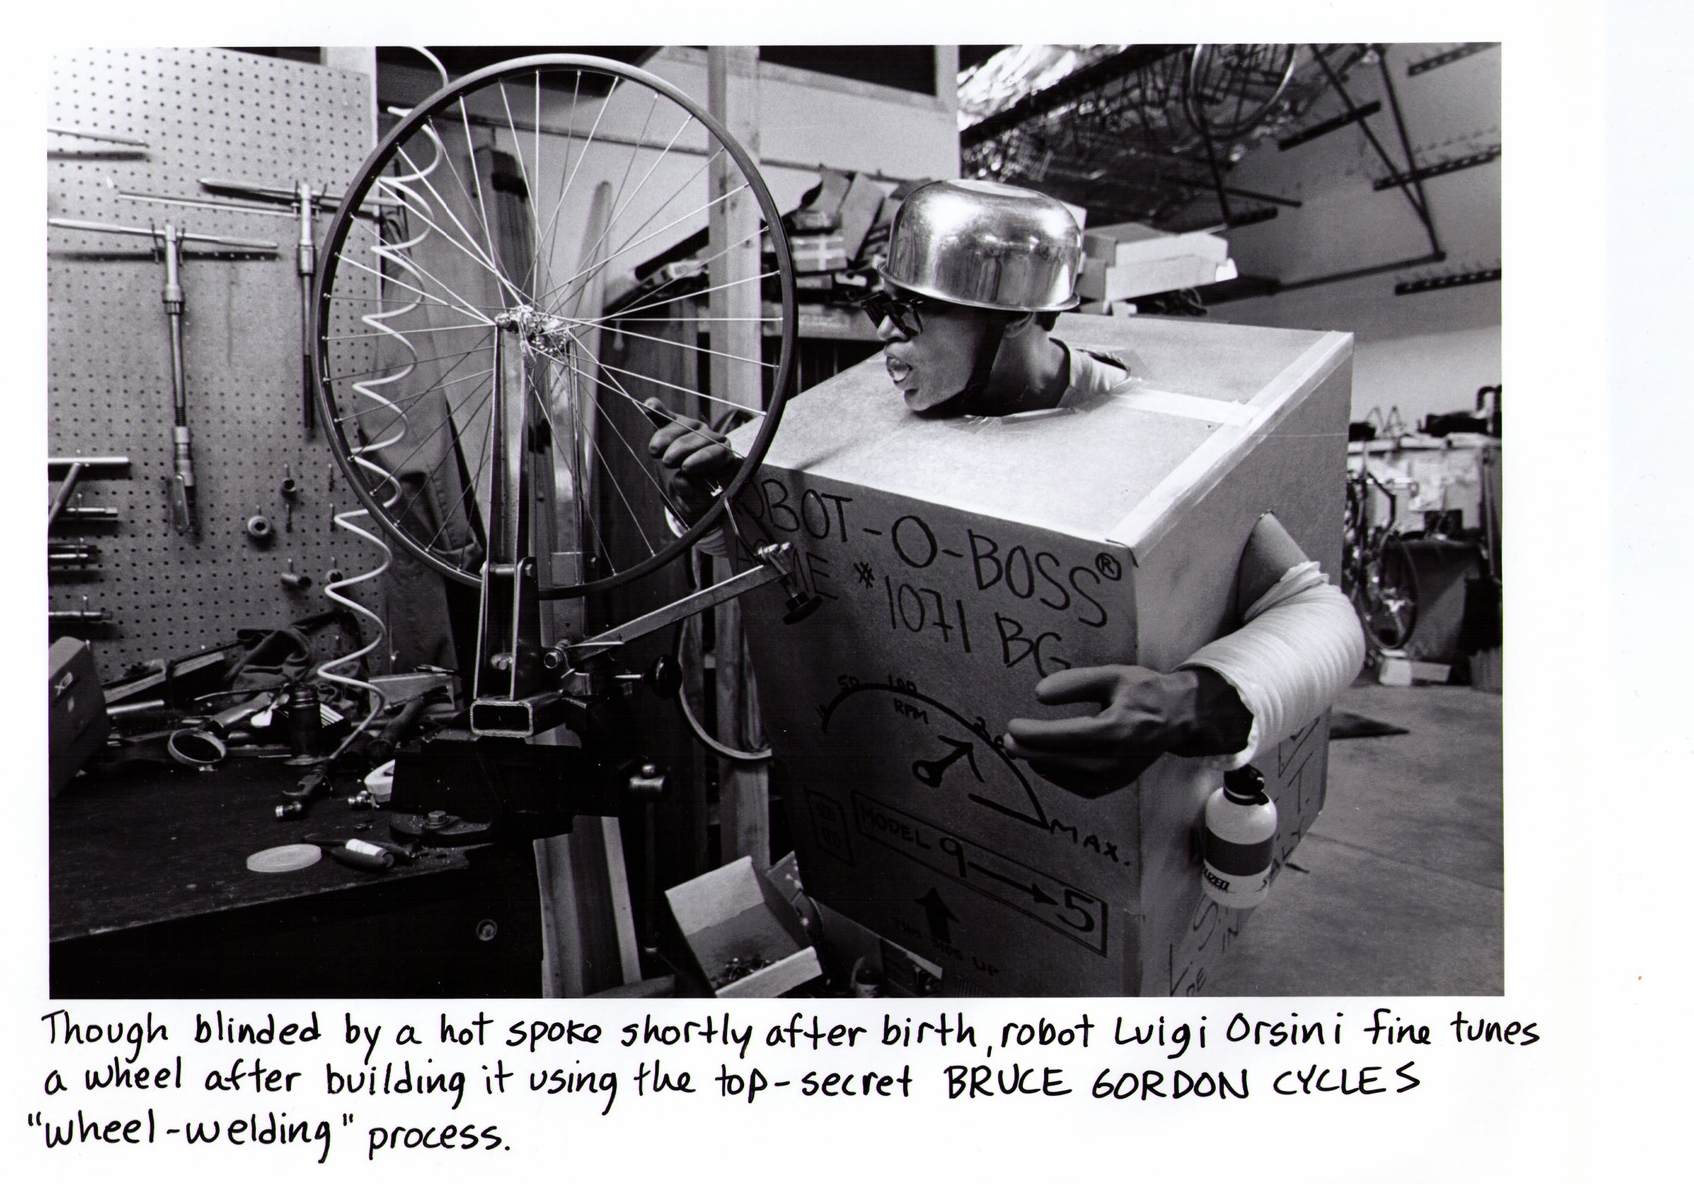 ROBOT-O-BOSS®
ACME #1071 BG
50 100
RPM
MAX.
MODEL 9→5
THIS SIDE UP
Though blinded by a hot spoke shortly after birth, robot Luigi Orsini fine tunes
a wheel after building it using the top-secret BRUCE GORDON CYCLES
"wheel-welding" process.